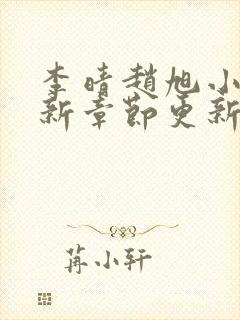 李晴趙旭小
新章節更新
苒小轩